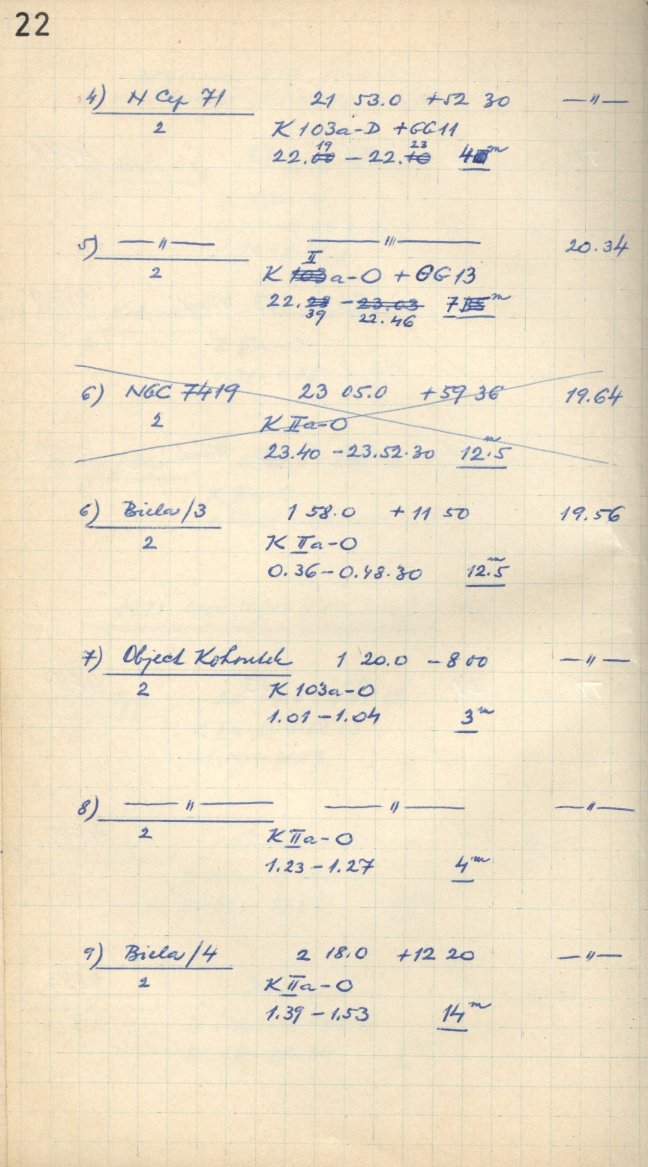 22
4) N Cep 71 21 53.0 +52 30 —〃—
2 K 103a-D + GG11
19 23
22.00 – 22.10 4 m
5) —〃— —〃— 20.34
II
2 K 103a-O + GG13
22.28 – 23.03 7 m
39 22.46
6) NGC 7419 23 05.0 +59 36 19.64
2 K IIa-O
23.40 – 23.52.30 12.5 m
6) Biela/3 1 58.0 +11 50 19.56
2 K IIa-O
0.36 – 0.48.30 12.5 m
7) Object Kohoutek 1 20.0 -8 00 —〃—
2 K 103a-O
1.01 – 1.04 3 m
8) —〃— —〃— —〃—
2 K IIa-O
1.23 – 1.27 4 m
9) Biela/4 2 18.0 +12 20 —〃—
2 K IIa-O
1.39 – 1.53 14 m